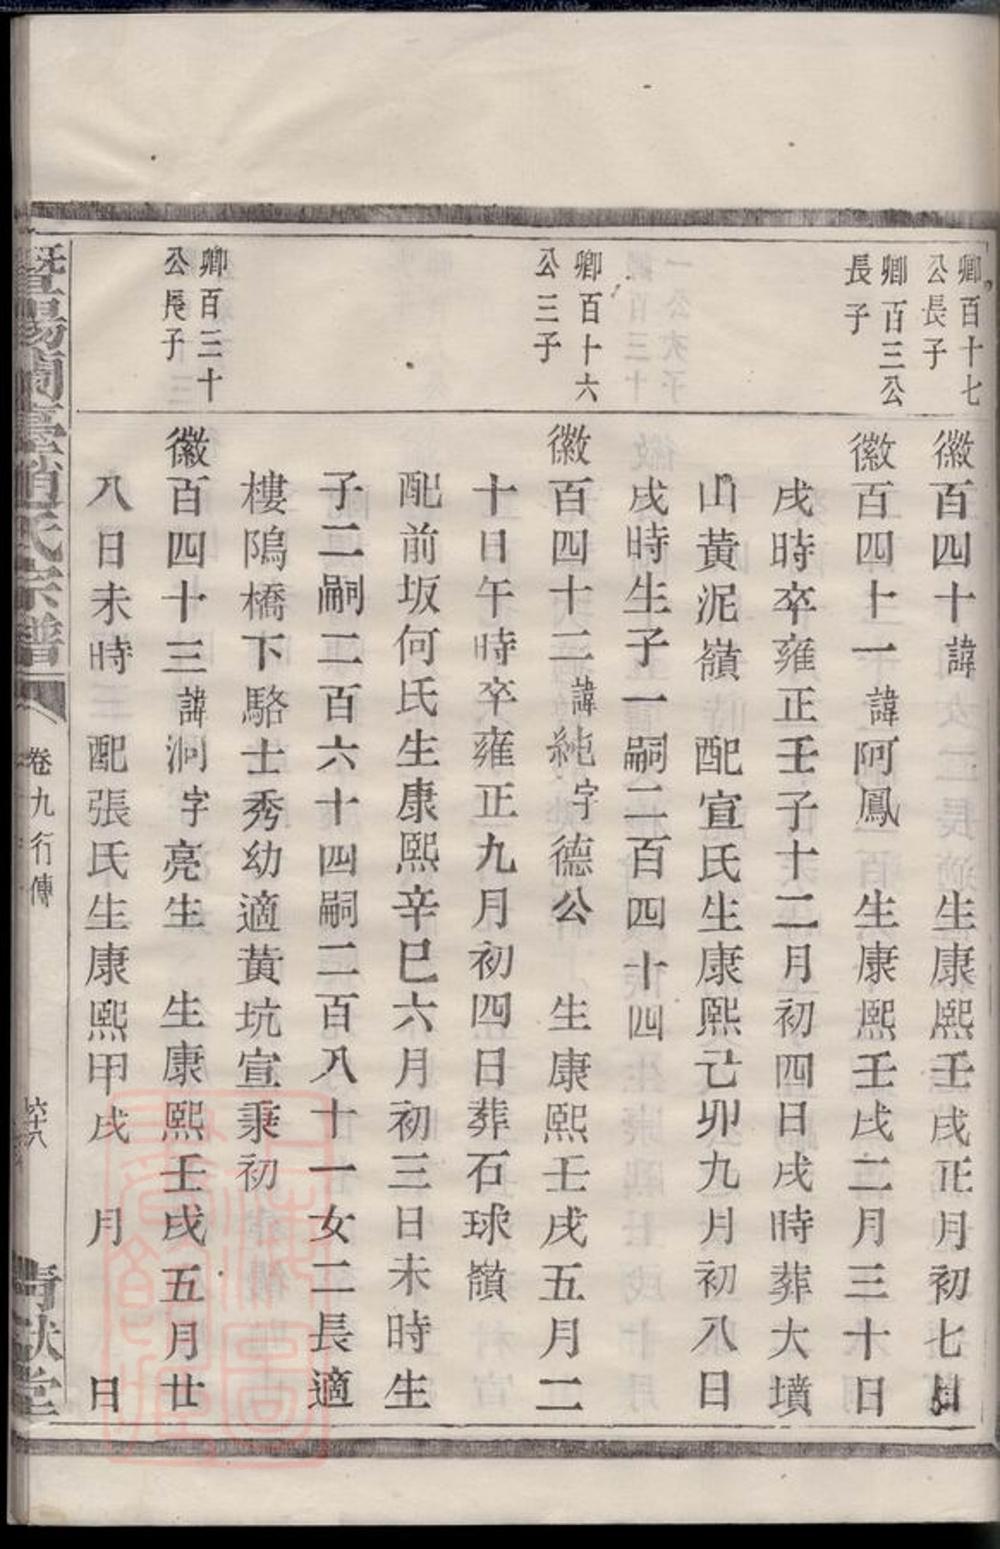 卿百十七
公長子
徽百四十諱　生康熙壬戌正月初七日
卿百三公
長子
徽百四十一諱阿鳳　生康熙壬戌二月三十日
戌時卒雍正壬子十二月初四日戌時葬大墳
山黃泥嶺　配宣氏生康熙己卯九月初八日
戌時生子一嗣二百四十四
卿百十六
公三子
徽百四十二諱純字德公　生康熙壬戌五月二
十日午時卒雍正九月初四日葬石球嶺
配前坂何氏生康熙辛巳六月初三日未時生
子二嗣二百六十四嗣二百八十一女二長適
樓隝橋下駱士秀幼適黃坑宣秉初
卿百三十
公長子
徽百四十三諱泂字亮生　生康熙壬戌五月廿
八日未時　配張氏生康熙甲戌　月　日
暨陽蘭臺趙氏宗譜
卷九行傳
青猷堂